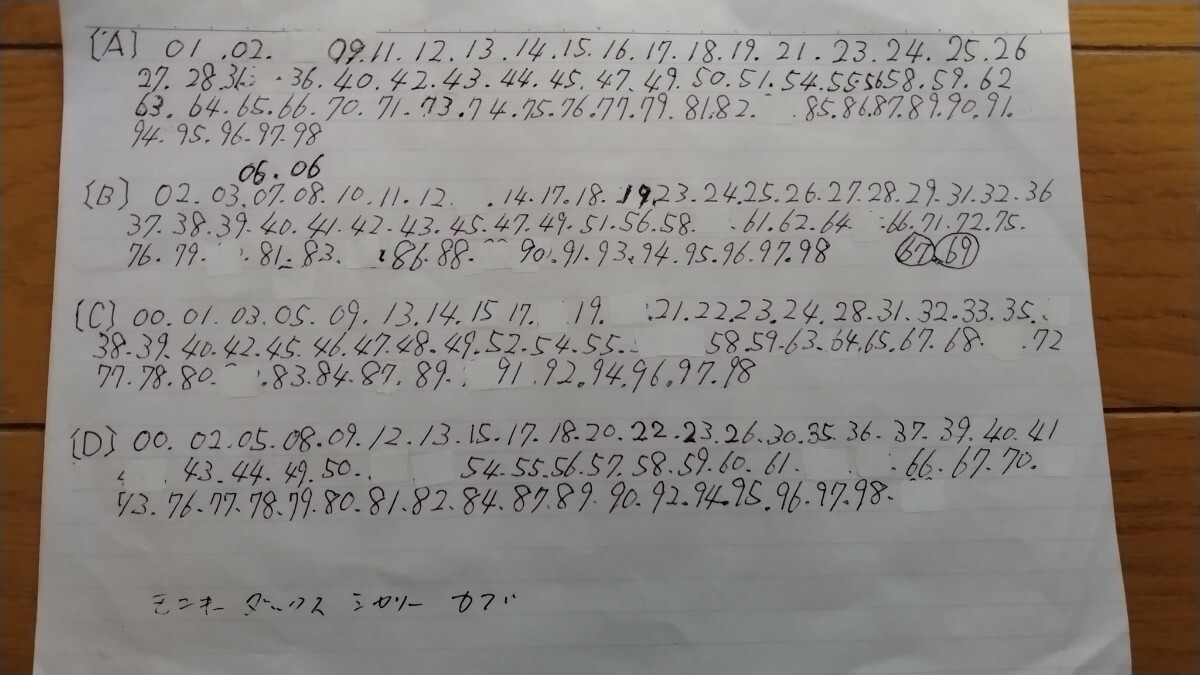 [A] 01.02. 09.11.12.13.14.15.16.17.18.19.21.23.24.25.26
27.28.31 .36.40.42.43.44.45.47.49.50.51.54.55.56.58.59.62
63.64.65.66.70.71.73.74.75.76.77.79.81.82. .85.86.87.89.90.91.
94.95.96.97.98
06.06
[B] 02.03.07.08.10.11.12 .14.17.18.19.23.24.25.26.27.28.29.31.32.36
37.38.39.40.41.42.43.45.47.49.51.56.58. .61.62.64 .66.71.72.75.
76.79. .81.83. .86.88. 90.91.93.94.95.96.97.98 67.69
[C] 00.01.03.05.09.13.14.15 17. 19. .21.22.23.24.28.31.32.33.35.
38.39.40.42.45.46.47.48.49.52.54.55. 58.59.63.64.65.67.68. .72
77.78.80. .83.84.87.89. 91.92.94.96.97.98
[D] 00.02.05.08.09.12.13.15.17.18.20.22.23.26.30.35.36.37.39.40.41
43.44.49.50. 54.55.56.57.58.59.60.61. .66.67.70.
73.76.77.78.79.80.81.82.84.87.89.90.92.94.95.96.97.98.
モンキー ダックス ミカリー カブ